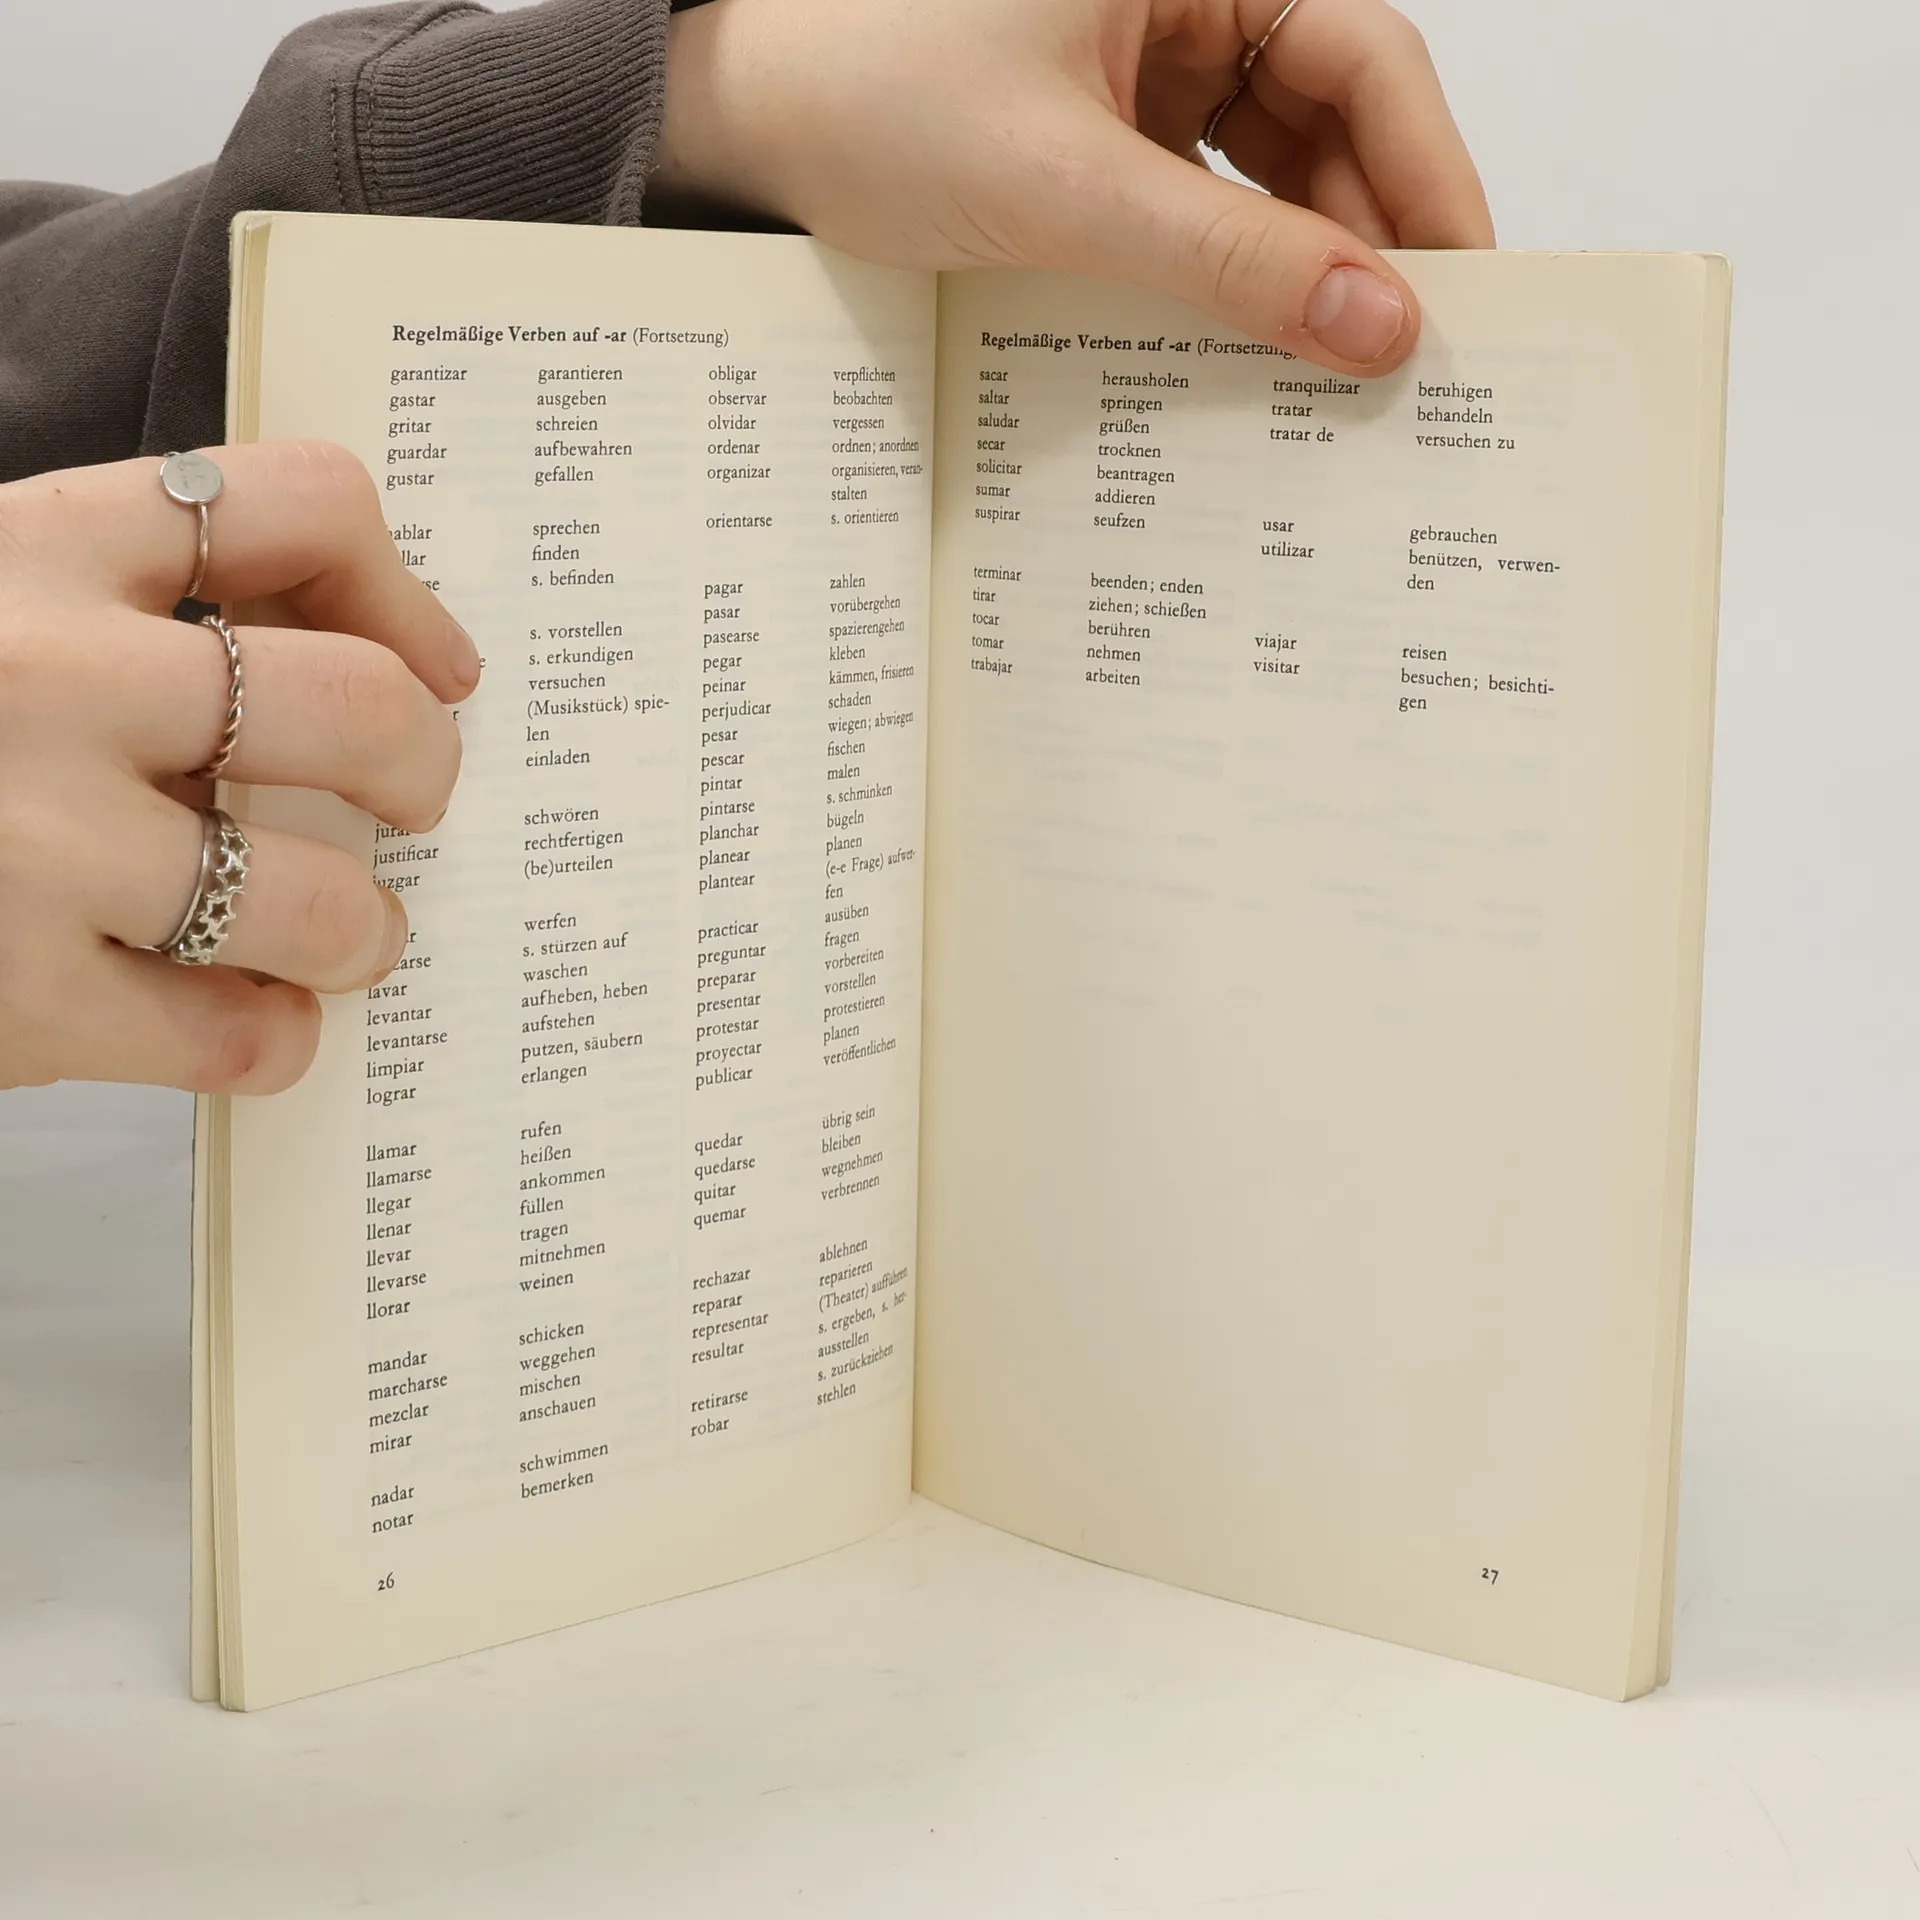 Regelmäßige Verben auf -ar (Fortsetzung)
garantizar garantieren
gastar ausgeben
gritar schreien
guardar aufbewahren
gustar gefallen
sprechen
finden
s. befinden
s. vorstellen
s. erkundigen
versuchen
(Musikstück) spie-
len
einladen
schwören
justificar rechtfertigen
juzgar (be)urteilen
werfen
s. stürzen auf
lavar waschen
levantar aufheben, heben
levantarse aufstehen
limpiar putzen, säubern
lograr erlangen
llamar rufen
llamarse heißen
llegar ankommen
llenar füllen
llevar tragen
llevarse mitnehmen
llorar weinen
mandar schicken
marcharse weggehen
mezclar mischen
mirar anschauen
nadar schwimmen
notar bemerken
obligar verpflichten
observar beobachten
olvidar vergessen
ordenar ordnen; anordnen
organizar organisieren, veran-
stalten
orientarse s. orientieren
pagar zahlen
pasar vorübergehen
pasearse spazierengehen
pegar kleben
peinar kämmen, frisieren
perjudicar schaden
pesar wiegen; abwiegen
pescar fischen
pintar malen
pintarse s. schminken
planchar bügeln
planear planen
plantear (e-e Frage) aufwer-
fen
practicar ausüben
preguntar fragen
preparar vorbereiten
presentar vorstellen
protestar protestieren
proyectar planen
publicar veröffentlichen
quedar übrig sein
quedarse bleiben
quitar wegnehmen
quemar verbrennen
rechazar ablehnen
reparar reparieren
representar (Theater) aufführen
resultar s. ergeben, s. her-
ausstellen
retirarse s. zurückziehen
robar stehlen
26
Regelmäßige Verben auf -ar (Fortsetzung)
sacar herausholen
saltar springen
saludar grüßen
secar trocknen
solicitar beantragen
sumar addieren
suspirar seufzen
terminar beenden; enden
tirar ziehen; schießen
tocar berühren
tomar nehmen
trabajar arbeiten
tranquilizar beruhigen
tratar behandeln
tratar de versuchen zu
usar gebrauchen
utilizar benützen, verwen-
den
viajar reisen
visitar besuchen; besichti-
gen
27